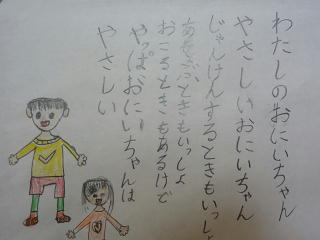 わたしのおにいちゃん
やさしいおにいちゃん
じゃんけんするときもいっしょ
あそぶときもいっしょ
おこるときもあるけど
やっぱおにいちゃんは
やさしい